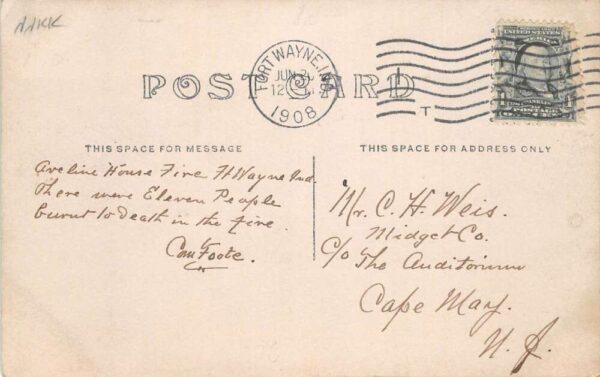 AAKK
POST CARD
FORT WAYNE, IND.
JUN 2
12
1908
T
UNITED STATES
OF AMERICA
1 FRANKLIN 1
THIS SPACE FOR MESSAGE
THIS SPACE FOR ADDRESS ONLY
Aveline House Fire Ft Wayne Ind.
There were Eleven People
burnt to death in the fire.
Foote.
Mr. C. H. Weis.
Midget Co.
c/o The Auditorium
Cape May.
N. J.